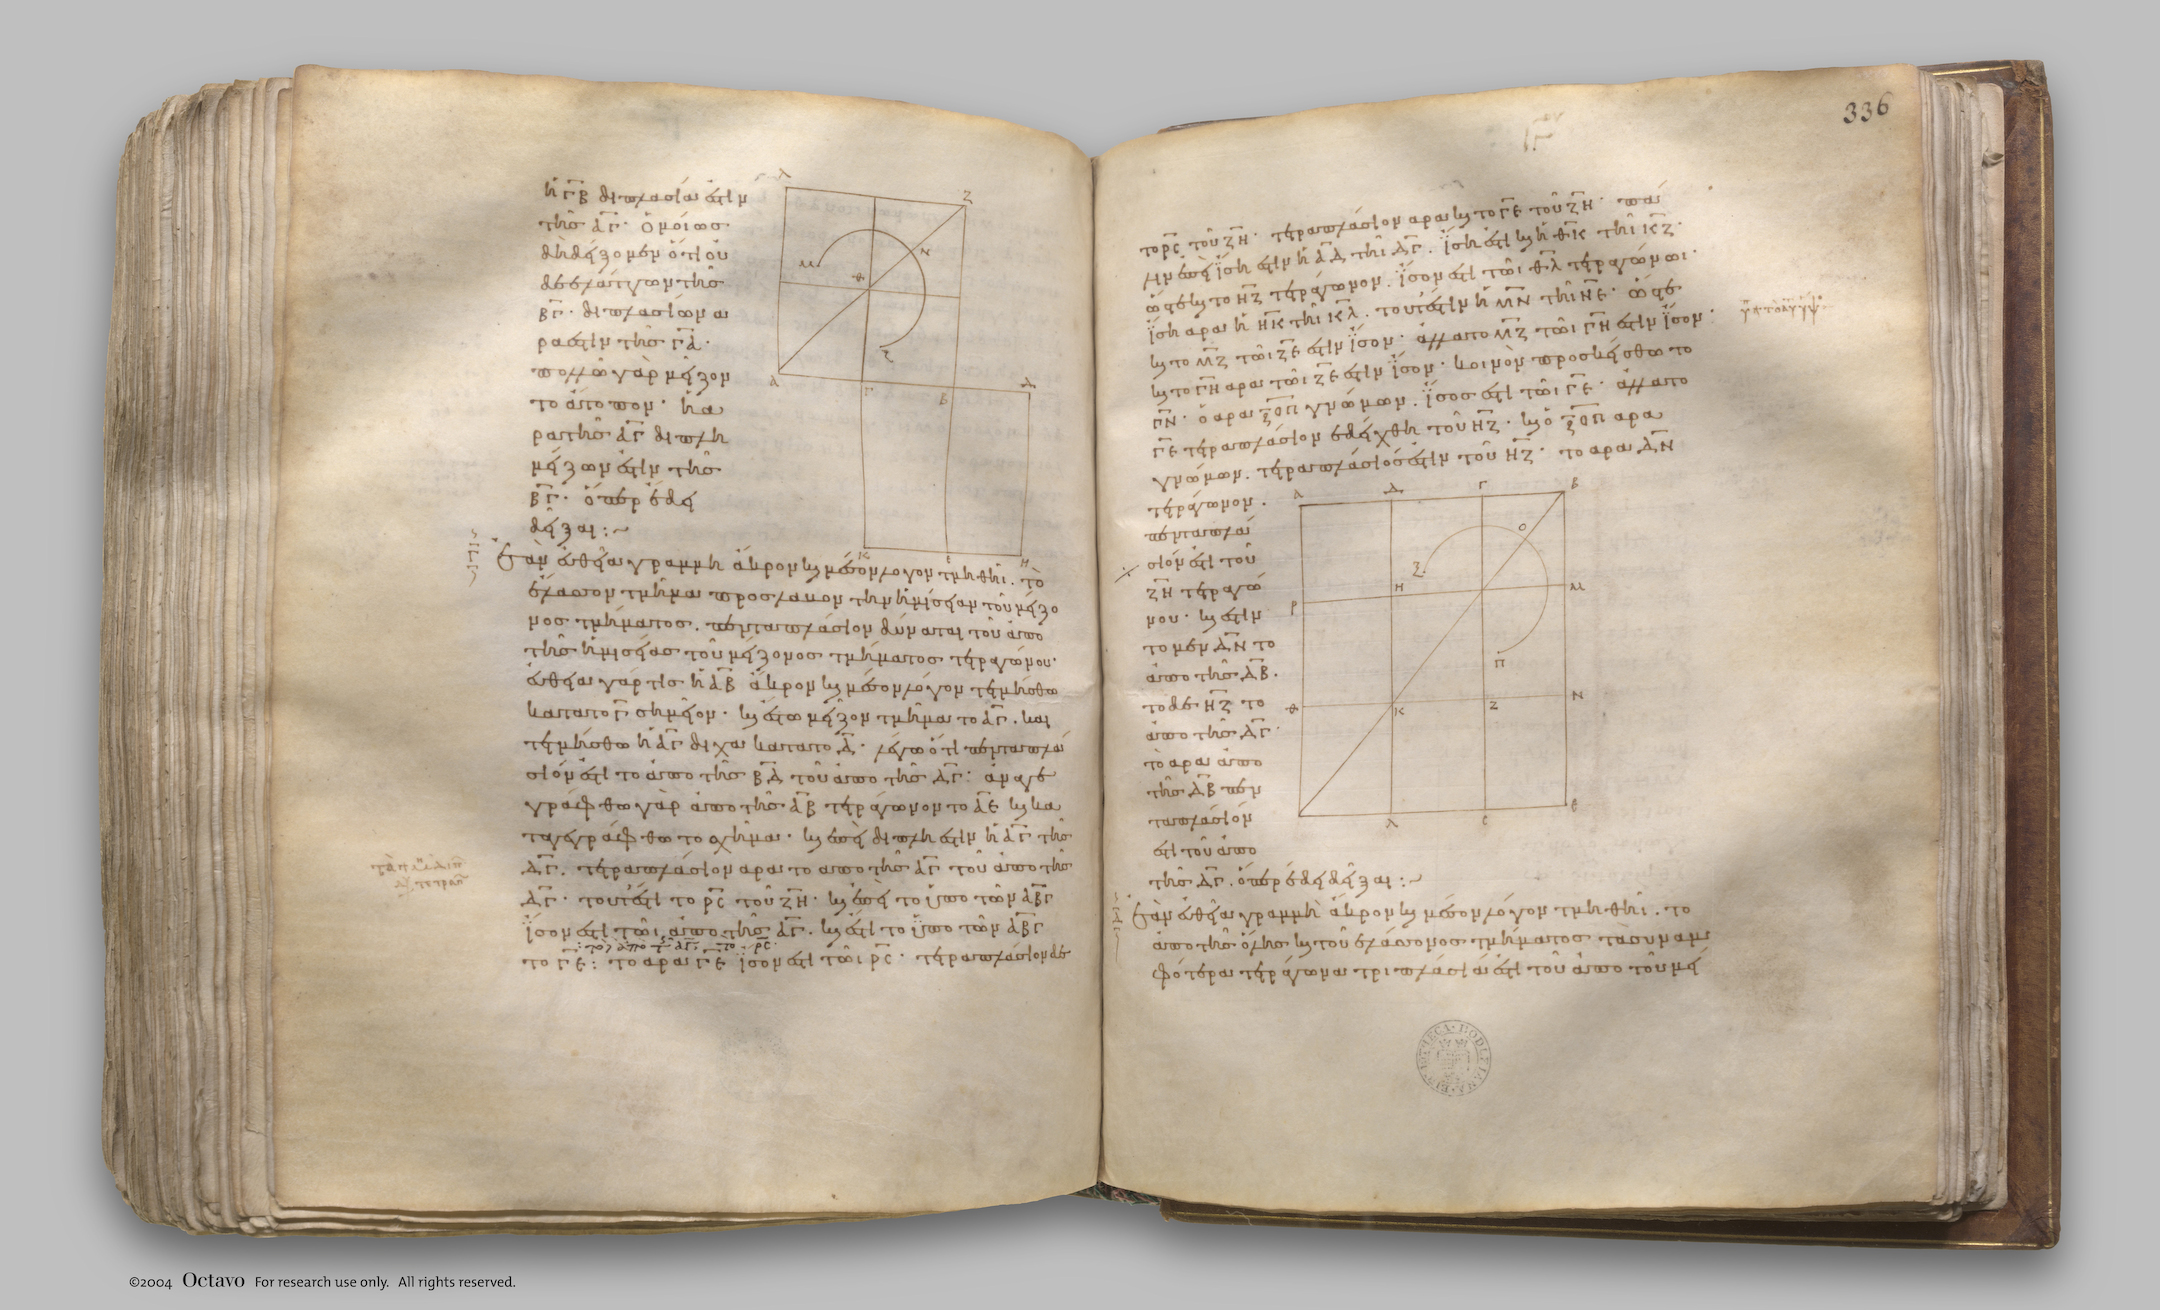 ἡ ΓΒ διπλασία ἐστὶν
τῆς ΑΓ· ὁμοίως
δὴ δείξομεν ὅτι οὐ
δὲ ἐλάττων τῆς
ΒΓ· διπλασίων ἄ
ρα ἐστὶν τῆς ΓΑ·
πολλῶ γὰρ μεῖζον
τὸ ἄτοπον· ἡ ἄ
ρα τῆς ΑΓ διπλῆ
μείζων ἐστὶν τῆς
ΒΓ· ὅπερ ἔδει
δεῖξαι:~
Λ Ζ
Μ Ν Θ Ξ
Α Γ Β Δ
Κ Ε Η
Ἐὰν εὐθεῖα γραμμὴ ἄκρον καὶ μέσον λόγον τμηθῆι. τὸ
ἔλασσον τμῆμα προσλαβὸν τὴν ἡμίσειαν τοῦ μείζο
νος τμήματος. πενταπλάσιον δύναται τοῦ ἀπὸ
τῆς ἡμισείας τοῦ μείζονος τμήματος τετραγώνου·
εὐθεῖα γάρ τις ἡ ΑΒ ἄκρον καὶ μέσον λόγον τετμήσθω
κατὰ τὸ Γ σημεῖον· καὶ ἔστω μεῖζον τμῆμα τὸ ΑΓ. καὶ
τετμήσθω ἡ ΑΓ δίχα κατὰ τὸ Δ· λέγω ὅτι πενταπλά
σιόν ἐστι τὸ ἀπὸ τῆς ΒΔ τοῦ ἀπὸ τῆς ΔΓ· ἀναγε
γράφθω γὰρ ἀπὸ τῆς ΑΒ τετράγωνον τὸ ΑΕ καὶ κα
ταγεγράφθω τὸ σχῆμα· καὶ ἐπεὶ διπλῆ ἐστιν ἡ ΑΓ τῆς
ΔΓ. τετραπλάσιον ἄρα τὸ ἀπὸ τῆς ΑΓ τοῦ ἀπὸ τῆς
ΔΓ· τουτέστι τὸ ΡΣ τοῦ ΖΗ· καὶ ἐπεὶ τὸ ὑπὸ τῶν ΑΒΓ
ἴσον ἐστὶ τῶι ἀπὸ τῆς ΑΓ. καὶ ἐστι τὸ ὑπὸ τῶν ΑΒΓ
τὸ ΓΕ: τὸ ἄρα ΓΕ ἴσον ἐστὶ τῶι ΡΣ· τετραπλάσιον δὲ
336
τὸ ΡΣ τοῦ ΖΗ· τετραπλάσιον ἄρα καὶ τὸ ΓΕ τοῦ ΖΗ· πά
λιν ἐπεὶ ἴση ἐστὶν ἡ ΑΔ τῆι ΔΓ. ἴση ἐστὶ καὶ ἡ ΘΚ τῆι ΚΖ·
ὥστε καὶ τὸ ΗΖ τετράγωνον. ἴσον ἐστὶ τῶι ΘΛ τετραγώνωι·
ἴση ἄρα ἡ ΗΚ τῆι ΚΛ. τουτέστιν ἡ ΜΝ τῆι ΝΕ· ὥστε
καὶ τὸ ΜΖ τῶι ΖΕ ἐστιν ἴσον· ἀλλὰ τὸ ΜΖ τῶι ΓΗ ἐστιν ἴσον·
καὶ τὸ ΓΗ ἄρα τῶι ΖΕ ἐστιν ἴσον· κοινὸν προσκείσθω τὸ
ΓΝ· ὁ ἄρα ΞΟΠ γνώμων. ἴσος ἐστὶ τῶι ΓΕ· ἀλλὰ τὸ
ΓΕ τετραπλάσιον ἐδείχθη τοῦ ΗΖ· καὶ ὁ ΞΟΠ ἄρα
γνώμων. τετραπλάσιός ἐστιν τοῦ ΗΖ· τὸ ἄρα ΔΝ
τετράγωνον.
πενταπλά
σιόν ἐστι τοῦ
ΖΗ τετραγώ
νου· καὶ ἐστιν
τὸ μὲν ΔΝ τὸ
ἀπὸ τῆς ΔΒ.
τὸ δὲ ΗΖ τὸ
ἀπὸ τῆς ΔΓ·
τὸ ἄρα ἀπὸ
τῆς ΔΒ πεν
ταπλάσιόν
ἐστι τοῦ ἀπὸ
τῆς ΔΓ. ὅπερ ἔδει δεῖξαι:~
Α Δ Γ Β
Ξ Ο
Ρ Η Μ
Π
Θ Κ Ζ Ν
Λ Σ Ε
Ἐὰν εὐθεῖα γραμμὴ ἄκρον καὶ μέσον λόγον τμηθῆι. τὸ
ἀπὸ τῆς ὅλης καὶ τοῦ ἐλάσσονος τμήματος τὰ συναμ
φότερα τετράγωνα τριπλάσιά ἐστι τοῦ ἀπὸ τοῦ μεί
©2004 Octavo For research use only. All rights reserved.